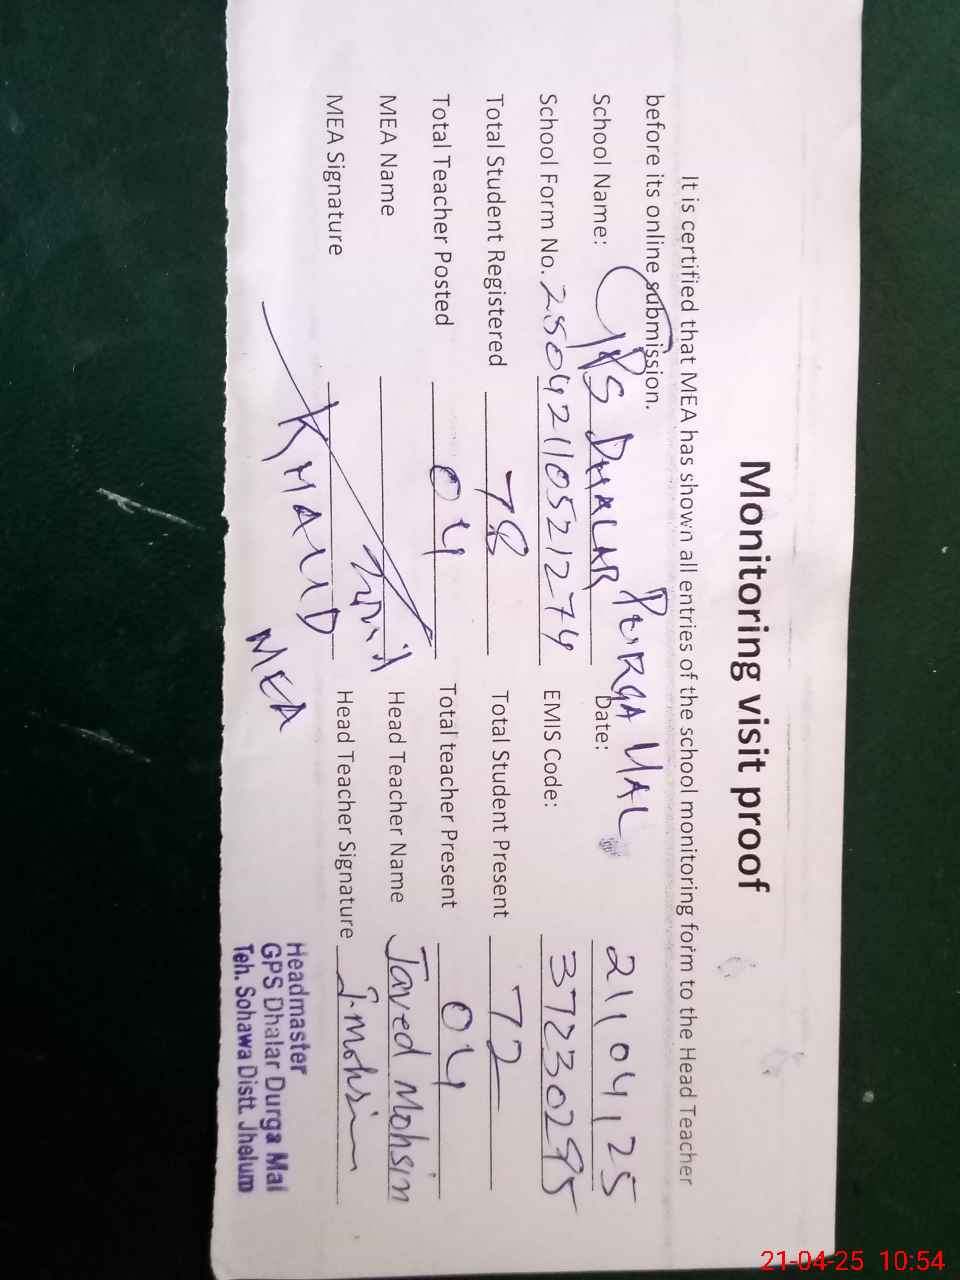 Monitoring visit proof
It is certified that MEA has shown all entries of the school monitoring form to the Head Teacher
before its online submission.
School Name: GPS DHALAR DURGA MAL Date: 21,04,25
School Form No. 25042110521274 EMIS Code: 37230295
Total Student Registered 78 Total Student Present 72
Total Teacher Posted 04 Total teacher Present 04
MEA Name Head Teacher Name Javed Mohsin
MEA Signature Head Teacher Signature J.Mohsin
MEA
Headmaster
GPS Dhalar Durga Mal
Teh. Sohawa Distt. Jhelum
21-04-25 10:54